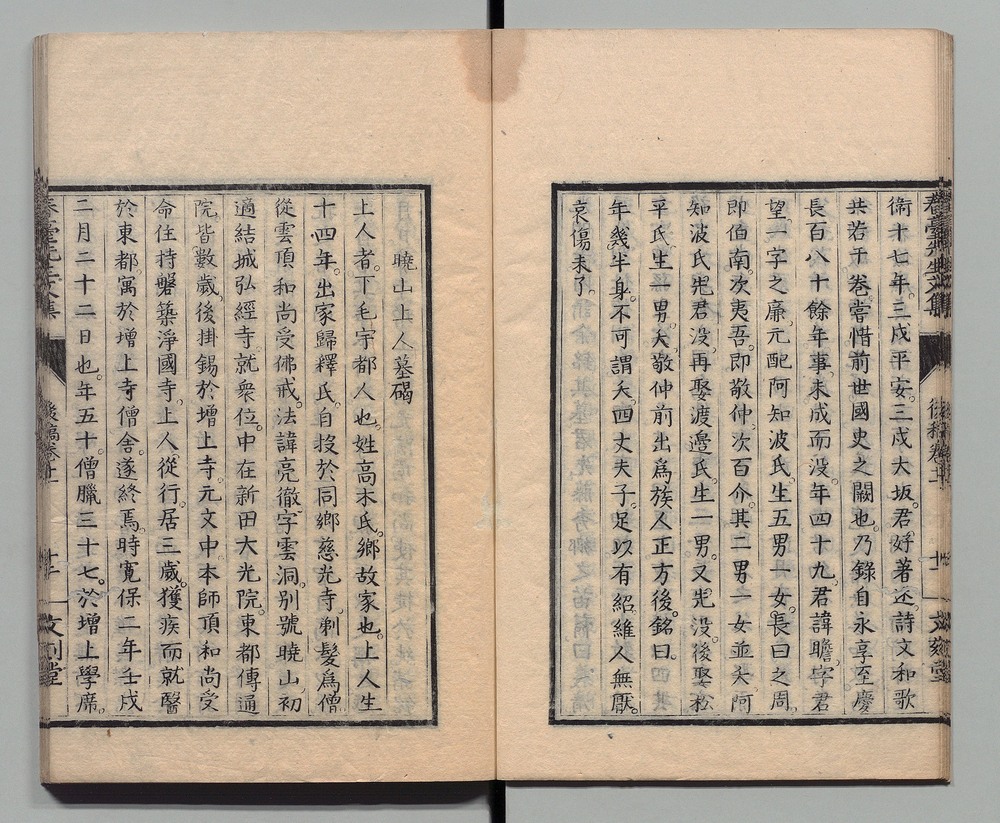 衞十七年。三戍平安。三戍大坂。君好著述。詩文和歌
共若干卷。嘗惜前世國史之闕也。乃錄自永享至慶
長百八十餘年事。未成而沒。年四十九。君諱瞻。字君
望。一字之廉。元配阿知波氏。生五男一女。長曰之周。
即伯南。次夷吾。即敬仲。次百介。其二男一女並夭。阿
知波氏先君沒。再娶渡邊氏。生一男。又先沒。後娶松
平氏。生一男。夭。敬仲前出爲族人正方後。銘曰。
年幾半身。不可謂夭。四丈夫子。足以有紹。維人無厭。
哀傷未了。
曉山上人墓碣
上人者。下毛宇都人也。姓高木氏。鄉故家也。上人生
十四年。出家歸釋氏。自投於同鄉慈光寺。剃髮爲僧
從雲頂和尚受佛戒。法諱亮徹。字雲洞。別號曉山。初
適結城弘經寺。就衆位。中在新田大光院。東都傳通
院。皆數歲。後掛錫於增上寺。元文中。本師頂和尚受
命住持磐築淨國寺。上人從行。居三歲。獲疾而就醫
於東都。寓於增上寺僧舍。遂終焉。時寬保二年壬戌
二月二十二日也。年五十。僧臘三十七。於增上學席。
春臺先生文集
後稿卷十
文刻堂